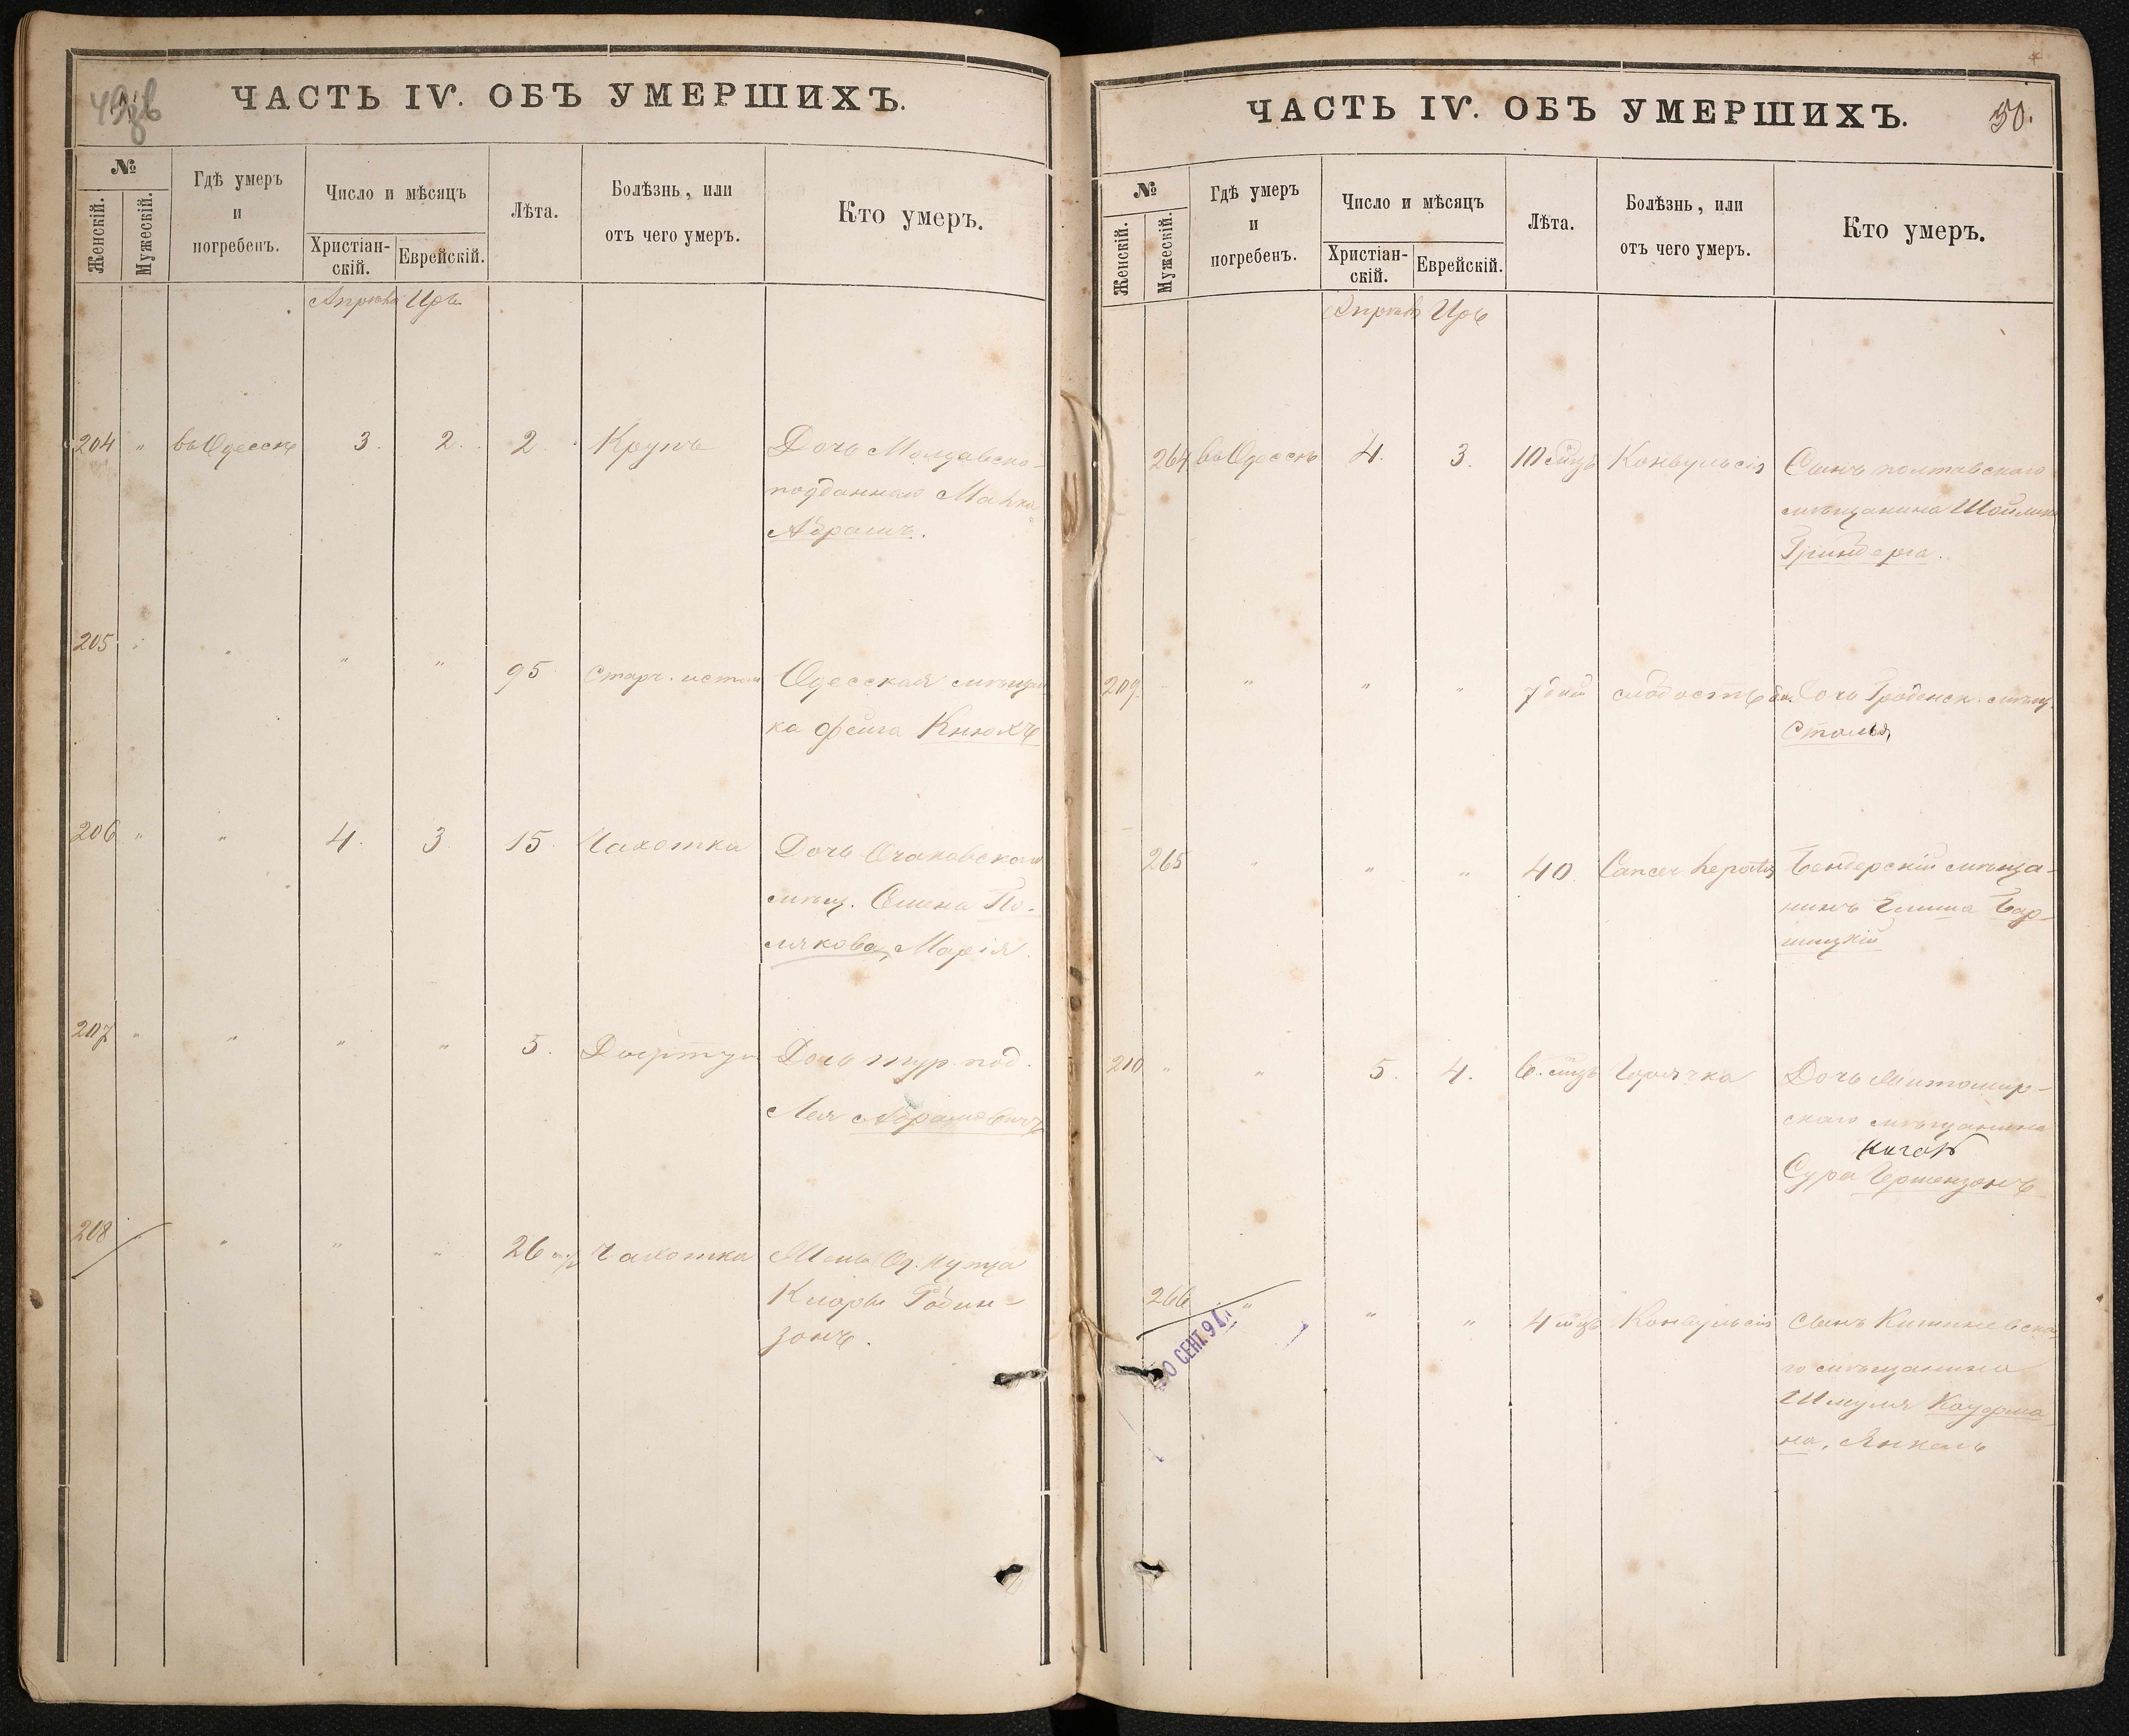 ЧАСТЬ IV. ОБЪ УМЕРШИХЪ.
№
Женскій.
Мужескій.
Гдѣ умеръ
и
погребенъ.
Число и мѣсяцъ
Христіан-
скій.
Еврейскій.
Лѣта.
Болѣзнь, или
отъ чего умеръ.
Кто умеръ.
Апрель Иръ
204 " въ Одессѣ 3. 2. 2. Крупъ Дочь Молдавско-
подданнаго Малка
Абрамъ.
205 " " " " 95 Старч. истощ Одесская мѣщан
ка Фейга Кнюхъ
206 " " 4. 3. 15. Чахотка Дочь Очаковскаго
мѣщ. Семена По-
лякова, Марія
207 " " " " 5. Дифтер Дочь тур. под.
Лея Абрамовичъ
208 " " " " 26 Чахотка Жена Од. купца
Клары Робин-
зонъ.
ЧАСТЬ IV. ОБЪ УМЕРШИХЪ.
50.
№
Женскій.
Мужескій.
Гдѣ умеръ
и
погребенъ.
Число и мѣсяцъ
Христіан-
скій.
Еврейскій.
Лѣта.
Болѣзнь, или
отъ чего умеръ.
Кто умеръ.
Апрель Иръ
264 въ Одессѣ 4. 3. 10 мѣс Конвульсія Сынъ полтавскаго
мѣщанина Шойлика
Гринберга.
209. " " " " 7 дней слабость Дочь Гродненск. мѣщ.
265 " " " 40 Cancer hepatis Бендерскій мѣща-
нинъ
210 " " 5. 4. 6. мѣс Горячка Дочь Житомир-
скаго мѣщанина
Коган
Сура Гершензонъ
266 " " " 4 мѣс Конвульсія Сынъ Кишиневска
го мѣщанина
Шмуля Кауфма
на, Янкель
СЕНТ. 91